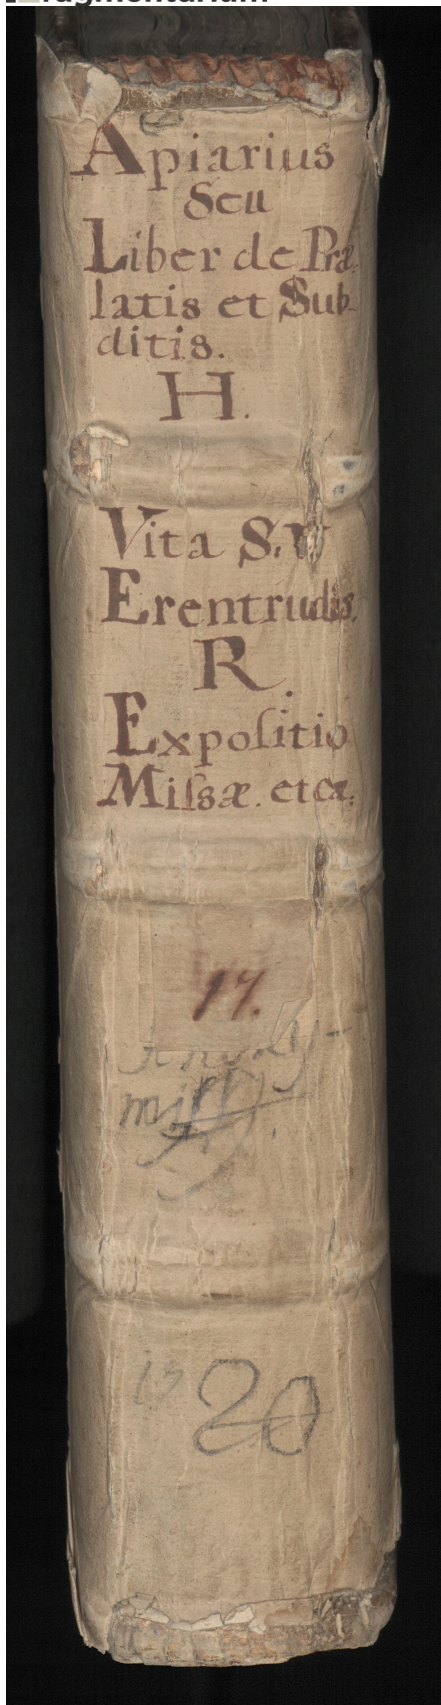 Apiarius
Seu
Liber de Præ-
latis et Sub-
ditis.
H.
Vita S. V
Erentrudis.
R.
Expositio
Missæ. etca.
17.
20